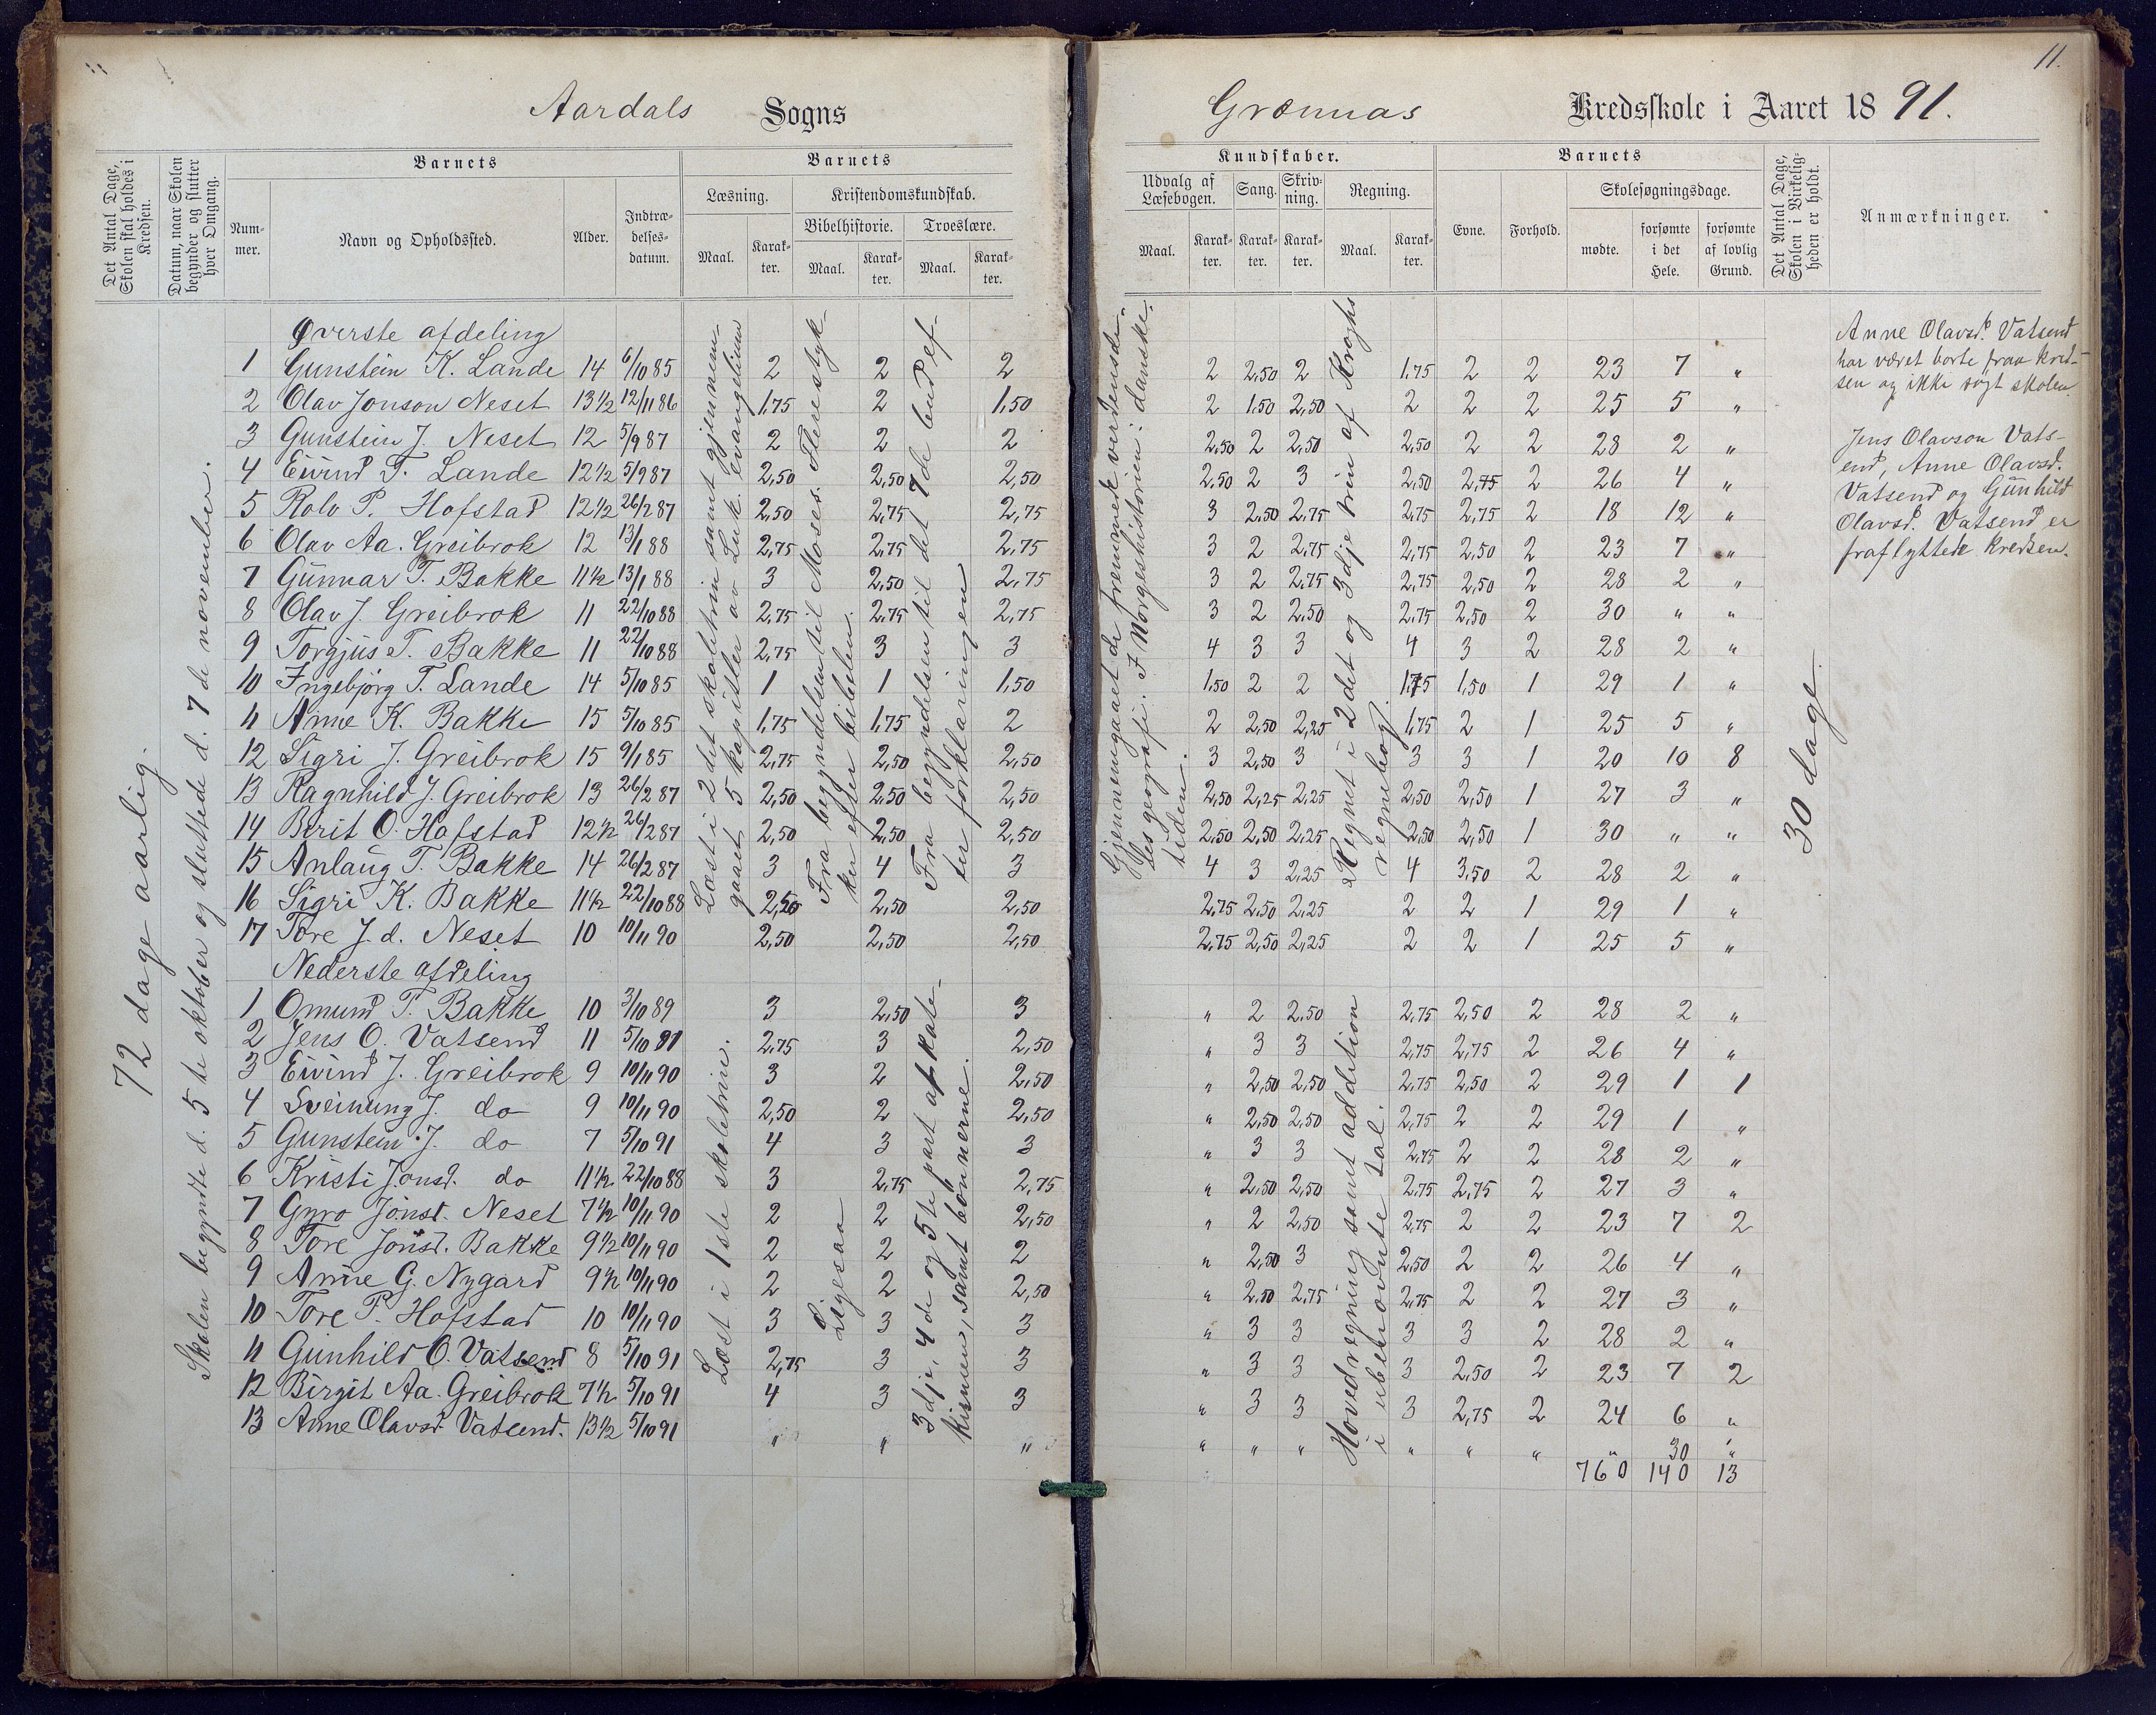 11.
Aardals Sogns
Grønnas Kredsskole i Aaret 1891.
Det Antal Dage, Skolen skal holdes i Kredsen.
Datum, naar Skolen begynder og slutter hver Omgang.
Barnets
Nummer.
Navn og Opholdssted.
Alder.
Indtrædelsesdatum.
Barnets
Læsning.
Maal.
Karakter.
Kristendomskundskab.
Bibelhistorie.
Maal.
Karakter.
Troeslære.
Maal.
Karakter.
Kundskaber.
Udvalg af Læsebogen.
Maal.
Karakter.
Sang.
Karakter.
Skrivning.
Karakter.
Regning.
Maal.
Karakter.
Barnets
Evne.
Forhold.
Skolesøgningsdage.
mødte.
forsømte i det Hele.
forsømte af lovlig Grund.
Det Antal Dage, Skolen i Virkeligheden er holdt.
Anmærkninger.
72 dage aarlig.
Skolen begyndte d. 5te oktober og sluttede d. 7de november.
Øverste afdeling
1 Gunstein K. Lande 14 6/10 85 2 2 2 2 2,50 2 1,75 2 2 23 7 "
2 Olav Jonson Neset 13 1/2 12/11 86 1,75 2 1,50 2 1,50 2,50 2 2 2 25 5 "
3 Gunstein J. Neset 12 5/9 87 2 2 2 2,50 2 2,50 2,50 2 2 28 2 "
4 Eivind T. Lande 12 1/2 5/9 87 2,50 2,50 2,50 2,50 2 3 2,50 2,75 2 26 4 "
5 Rolv P. Hofstad 12 1/2 26/2 87 2,50 2,75 2,75 3 2,50 2,75 2,75 2,75 2 18 12 "
6 Olav Aa. Greibrok 12 13/1 88 2,75 2,75 2,75 3 2 2,75 2,75 2,50 2 23 7 "
7 Gunnar T. Bakke 11 1/2 13/1 88 3 2,50 2,75 3 2 2,75 2,75 2,50 2 28 2 "
8 Olav J. Greibrok 11 22/10 88 2,75 2,75 2,75 3 2 2,50 2,75 2,50 2 30 " "
9 Torgjus T. Bakke 11 22/10 88 2,75 3 3 4 3 3 4 3 2 28 2 "
10 Ingebjørg T. Lande 14 5/10 85 1 1 1,50 1,50 2 2 1,75 1,50 1 29 1 "
11 Anne K. Bakke 15 5/10 85 1,75 1,75 2 2 2,50 2,25 1,75 2 1 25 5 "
12 Sigri J. Greibrok 15 9/1 85 2,75 2,50 2,50 3 2,50 3 3 3 1 20 10 8
13 Ragnhild J. Greibrok 13 26/2 87 2,50 2,50 2,50 2,50 2,25 2,25 2,50 2,50 1 27 3 "
14 Berit O. Hofstad 12 1/2 26/2 87 2,50 2,50 2,50 2,50 2,50 2,25 2,50 2,50 1 30 " "
15 Anlaug T. Bakke 14 26/2 87 3 4 3 4 3 2,25 4 3,50 2 28 2 "
16 Sigri K. Bakke 11 1/2 22/10 88 2,50 2,50 2,50 2,75 2,50 2,25 2 2 1 29 1 "
17 Tore J.d. Neset 10 10/11 90 2,50 2,50 2,50 2,75 2,50 2,25 2 2 1 25 5 "
Læst i 2det skoletrin samt gjennem-
gaaet 5 kapitler av Luk. evangelium
Fra begyndelsen til Moses. Flere styk-
ker efter bibelen.
Fra begyndelsen til det 7de bud ef-
ter forklaringen
Gjennemgaaet de fremmede verdensde-
les geografi. I Norgeshistorien: danske-
tiden.
Regnet i 2det og 3dje trin af Kroghs
regnebog.
Nederste afdeling
1 Omund T. Bakke 10 3/10 89 3 2,50 3 " 2 2,50 2,75 2,50 2 28 2 "
2 Jens O. Vatsend 11 5/10 91 2,75 3 2,50 " 3 3 2,75 2,75 2 26 4 "
3 Eivind J. Greibrok 9 10/11 90 3 2 2,50 " 2,50 2,50 2,75 2,50 2 29 1 1
4 Sveinung J. do 9 10/11 90 2,50 2 2,50 " 2,50 2,50 2,75 2 2 29 1 "
5 Gunstein J. do 7 5/10 91 4 3 3 " 3 3 2,75 2 2 28 2 "
6 Kristi Jonsd. do 11 1/2 22/10 88 3 2,75 2,75 " 2,50 2,50 2,75 2,75 2 27 3 "
7 Gyro Jonsd. Neset 7 1/2 10/11 90 2 2 2,50 " 2 2,50 2,75 2 2 23 7 2
8 Tore Jonsd. Bakke 9 1/2 10/11 90 2 2 2 " 2,50 3 2,50 2 2 26 4 "
9 Anne G. Nygard 9 1/2 10/11 90 2 2 2,50 " 2,50 2,75 2,75 2 2 27 3 "
10 Tore P. Hofstad 10 10/11 90 3 3 3 " 3 3 3 3 2 28 2 "
11 Gunhild O. Vatsend 8 5/10 91 2,75 3 3 " 3 3 3 2,50 2 23 7 2
12 Birgit Aa. Greibrok 7 1/2 5/10 91 4 3 3 " 3 3 3 2,75 2 24 6 "
13 Anne Olavsd. Vatsend. 13 1/2 5/10 91 " " " " " " " " " " 30 "
760 140 13
Læst i 1ste skoletrin.
Ligesaa
3dje, 4de og 5te part af kate-
kismen, samt bönnerne.
Hovedregning samt addition
i ubenævnte tal.
30 dage
Anne Olavsd. Vatsend
har været borte fraa kred-
sen og ikke søgt skolen.
Jens Olavson Vats-
end, Anne Olavsd.
Vatsend og Gunhild
Olavsd. Vatsend er
fraflyttede kredsen.